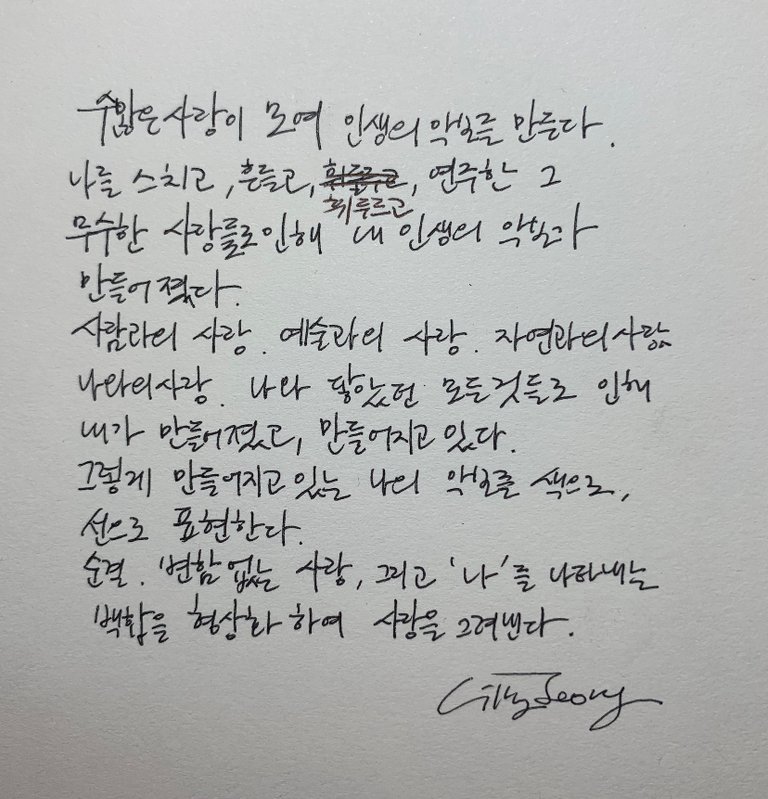 수많은 사랑이 모여 인생의 악보를 만든다.
나를 스치고, 흔들고, 휘두르고, 연주한 그
무수한 사랑들로인해 내 인생의 악보가
만들어졌다.
사람과의 사랑. 예술과의 사랑. 자연과의사랑.
나와의사랑. 나와 닿았던 모든것들로 인해
내가 만들어졌고, 만들어지고있다.
그렇게 만들어지고있는 나의 악보를 색으로,
선으로 표현한다.
순결. 변함없는 사랑, 그리고 '나'를 나타내는
백합을 형상화 하여 사랑을 그려낸다.